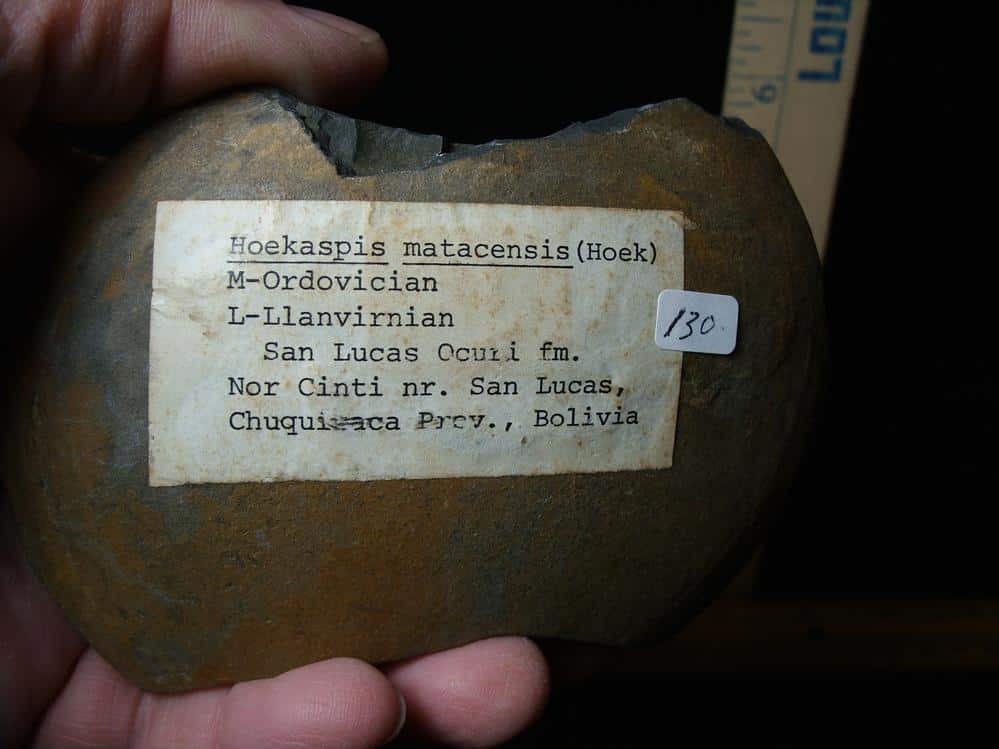 Hoekaspis matacensis (Hoek)
M-Ordovician
L-Llanvirnian
San Lucas Ocuri fm.
Nor Cinti nr. San Lucas,
Chuquisaca Prov., Bolivia
130.
6
LOW